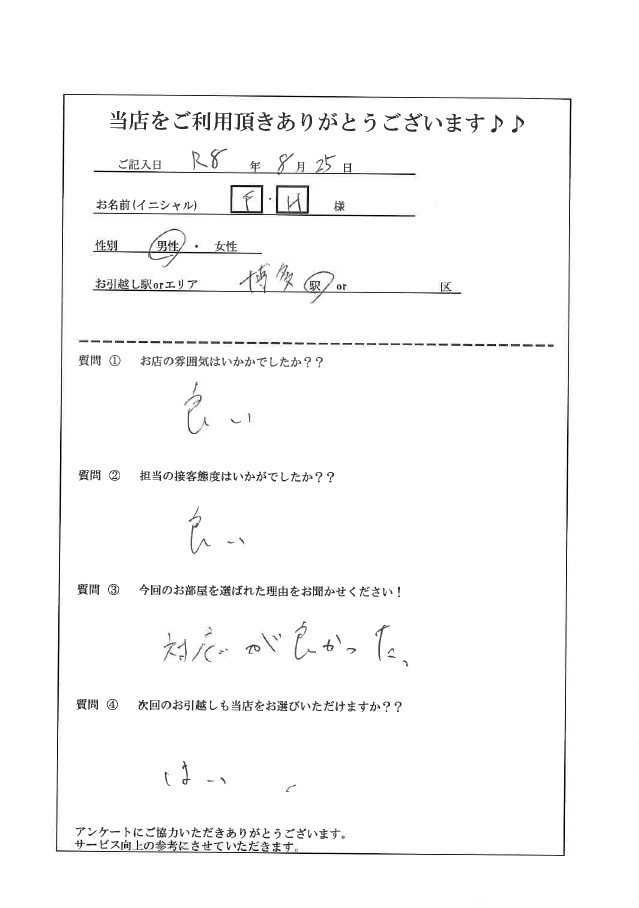 当店をご利用頂きありがとうございます♪♪
ご記入日 R8 年 8 月 25 日
お名前(イニシャル) F・H 様
性別 男性 ・ 女性
お引越し駅orエリア 博多 駅 or 区
質問 ① お店の雰囲気はいかかでしたか??
良い
質問 ② 担当の接客態度はいかがでしたか??
良い
質問 ③ 今回のお部屋を選ばれた理由をお聞かせください!
対応が良かった。
質問 ④ 次回のお引越しも当店をお選びいただけますか??
はい。
アンケートにご協力いただきありがとうございます。
サービス向上の参考にさせていただきます。